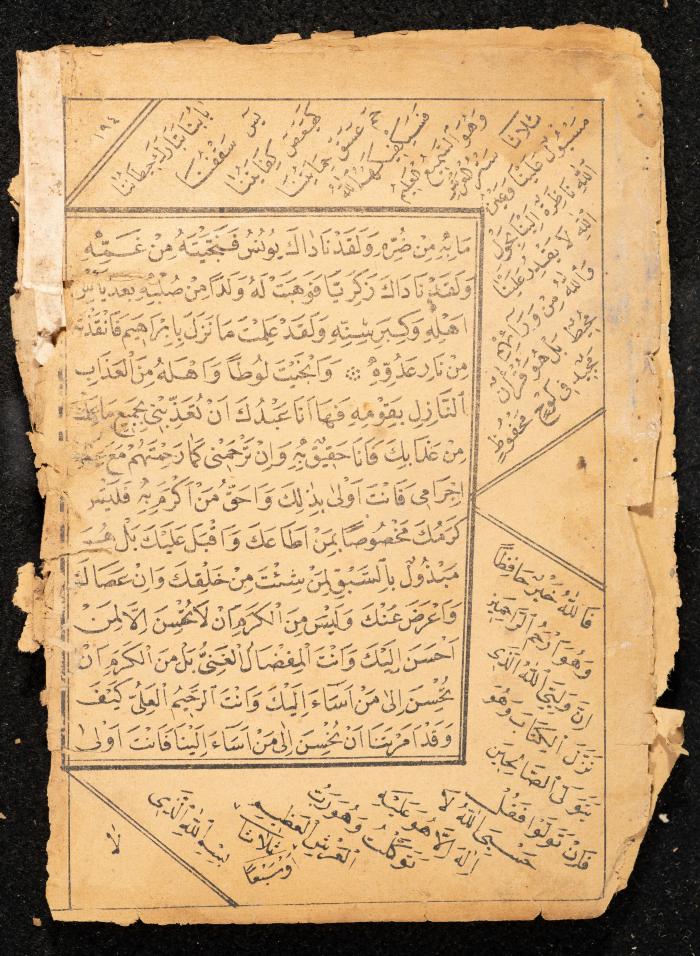 ١٩٤
بابنا تبارك حيطاننا
يس سقفنا
كهيعص كفايتنا
حم عسق حمايتنا
فسيكفيكهم الله
وهو السميع العليم
ثلاثا ستر العرش
مسبول علينا وعين
الله ناظرة الينا بحول
الله لا يقدر علينا
والله من ورآئهم
محيط بل هو قرآن
مجيد فى لوح محفوظ
ما به من ضره ولقد ناداك يونس فنجيته من غمه
ولقد ناداك زكريا فوهبت له ولدا من صلبه بعد يأس
اهله وكبر سنه ولقد علمت ما نزل بابراهيم فانقذته
من نار عدوه وانجيت لوطا واهله من العذاب
النازل بقومه فها انا عبدك ان تعذبنى بجميع ما
من عذابك فانا حقيق به وان ترحمنى كما رحمتهم مع
اجرامى فانت اولى بذلك واحق من اكرم به فليس
كرمك مخصوصا بمن اطاعك واقبل عليك بل هو
مبذول بالسبق لمن شئت من خلقك وان عصاك
واعرض عنك وليس من الكرم ان لا تحسن الا لمن
احسن اليك وانت المفضال الغنى بل من الكرم ان
تحسن الى من اساء اليك وانت الرحيم العلى كيف
وقد امرتنا ان نحسن الى من اساء الينا فانت اولى
فالله خير حافظا
وهو ارحم الراحمين
ان وليى الله الذى
نزل الكتاب وهو
يتولى الصالحين
فان تولوا فقل
حسبى الله لا
اله الا هو عليه
توكلت وهو رب
العرش العظيم
ثلاثا وسبعا
بسم الله الذى
لا